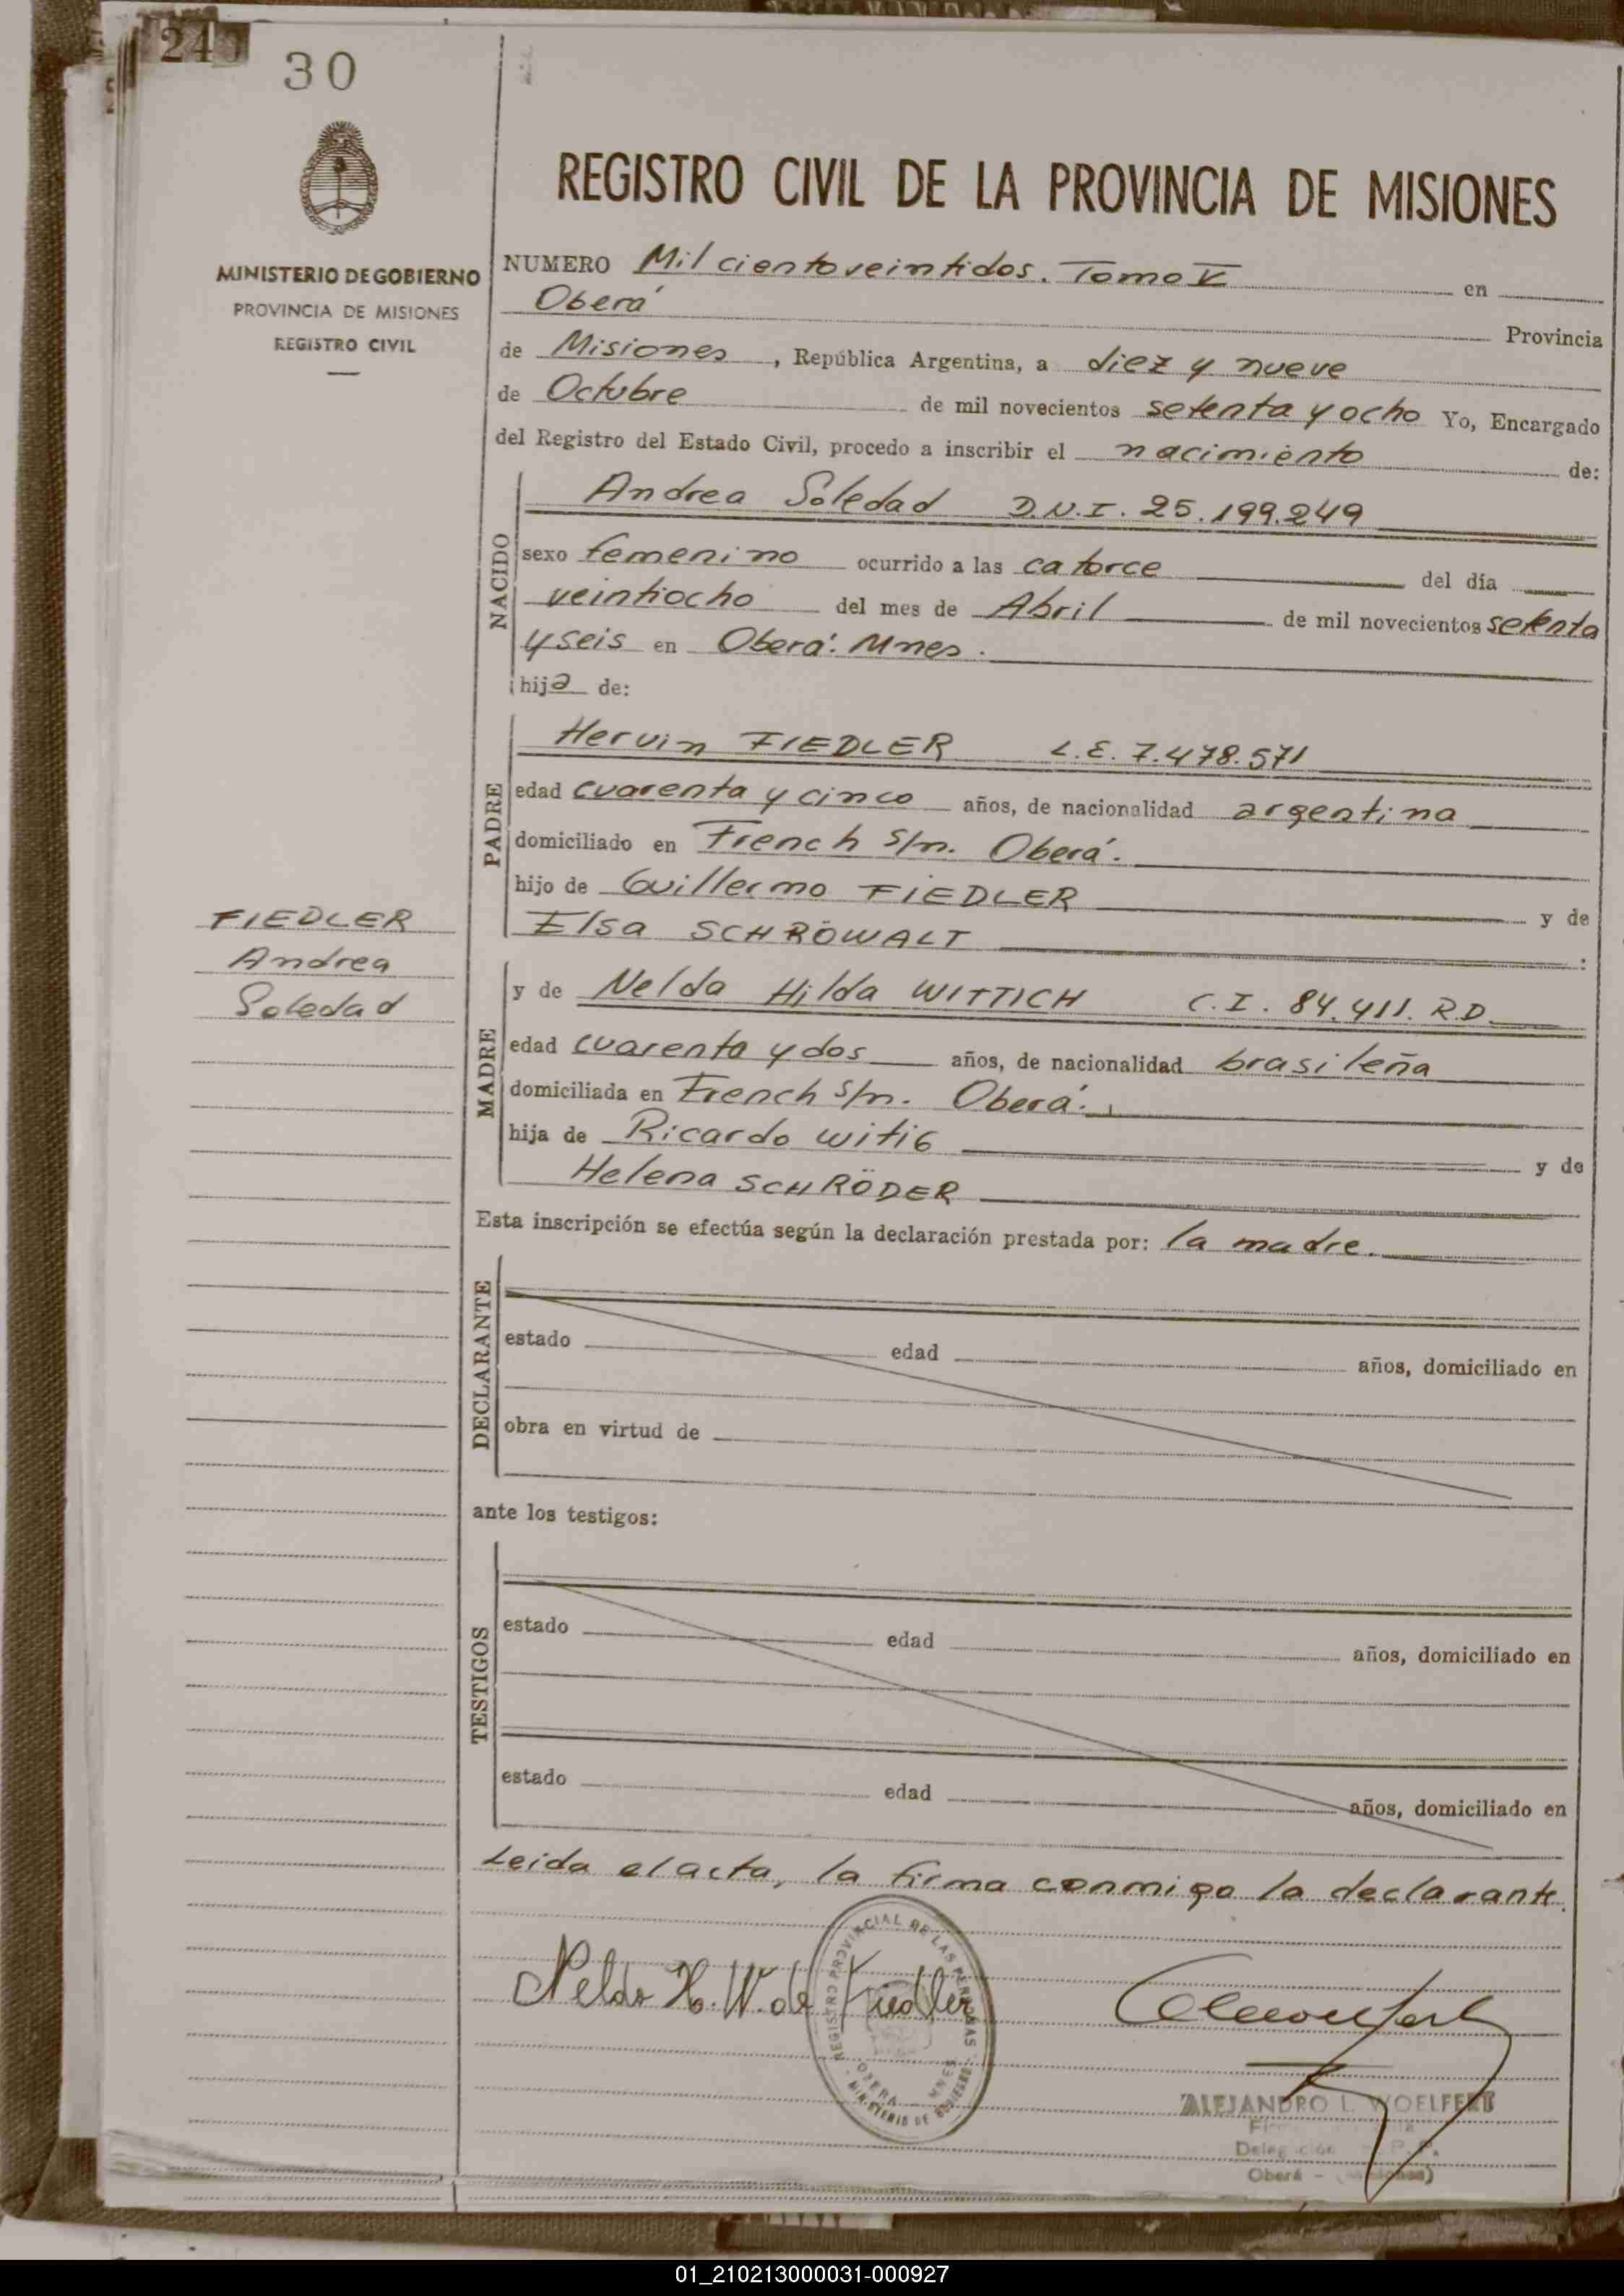 24
30
MINISTERIO DE GOBIERNO
PROVINCIA DE MISIONES
REGISTRO CIVIL
REGISTRO CIVIL DE LA PROVINCIA DE MISIONES
NUMERO Mil ciento veintidos. Tomo V en
Oberá Provincia
de Misiones, República Argentina, a diez y nueve
de Octubre de mil novecientos setenta y ocho Yo, Encargado
del Registro del Estado Civil, procedo a inscribir el nacimiento de:
NACIDO
Andrea Soledad D.N.I. 25.199.249
sexo femenino ocurrido a las catorce del día
veintiocho del mes de Abril de mil novecientos setenta
y seis en Oberá: Mnes.
hija de:
PADRE
Hervin FIEDLER L.E. 7.478.571
edad cuarenta y cinco años, de nacionalidad argentina
domiciliado en French s/n. Oberá.
hijo de Guillermo FIEDLER y de
Elsa SCHRÖWALT :
FIEDLER
Andrea
Soledad
MADRE
y de Nelda Hilda WITTICH C.I. 84.411. R.D.
edad cuarenta y dos años, de nacionalidad brasileña
domiciliada en French s/n. Oberá.
hija de Ricardo witiG y de
Helena SCHRÖDER
Esta inscripción se efectúa según la declaración prestada por: la madre.
DECLARANTE
estado edad años, domiciliado en
obra en virtud de
ante los testigos:
TESTIGOS
estado edad años, domiciliado en
estado edad años, domiciliado en
Leida el acta, la firma conmigo la declarante.
Nelda H. W. de Fiedler
REGISTRO PROVINCIAL DE LAS PERSONAS
OBERA MNES
MINISTERIO DE GOBIERNO
ALEJANDRO L. WOELFERT
Delegación R. P. P.
Oberá - (Misiones)
01_210213000031-000927